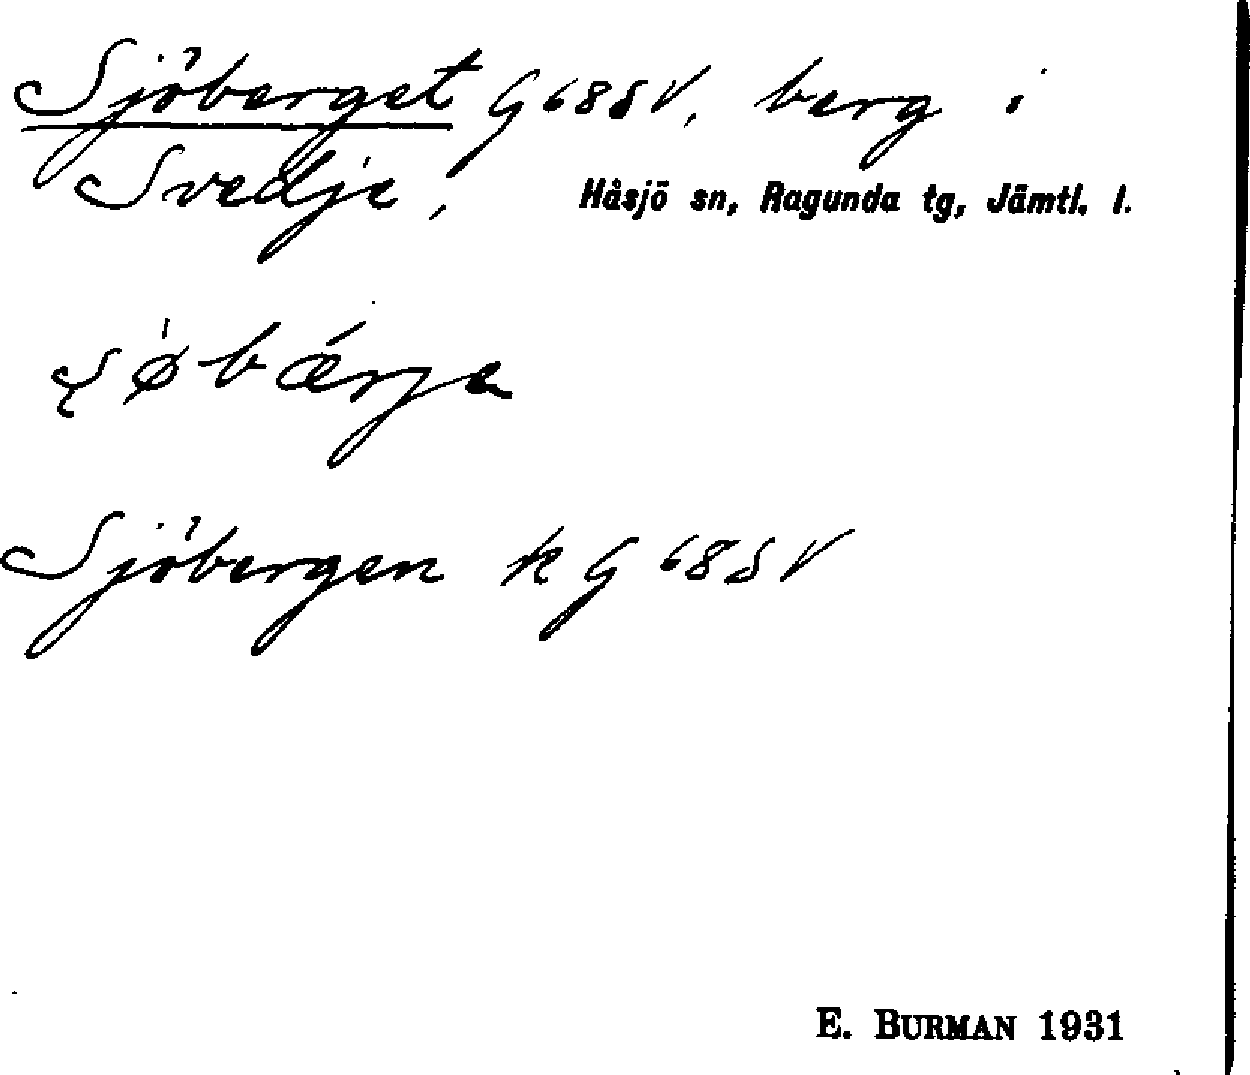 Sjöberget G68SV, berg i
Svedje, Håsjö sn, Ragunda tg, Jämtl. l.
Sjöbergen k G 68SV
E. BURMAN 1931